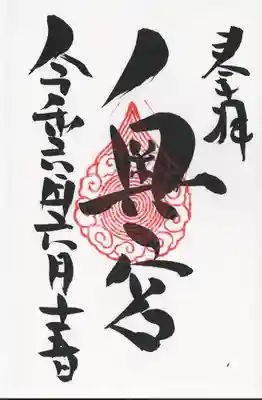 奉拝
奥宮
令和六年六月十五日